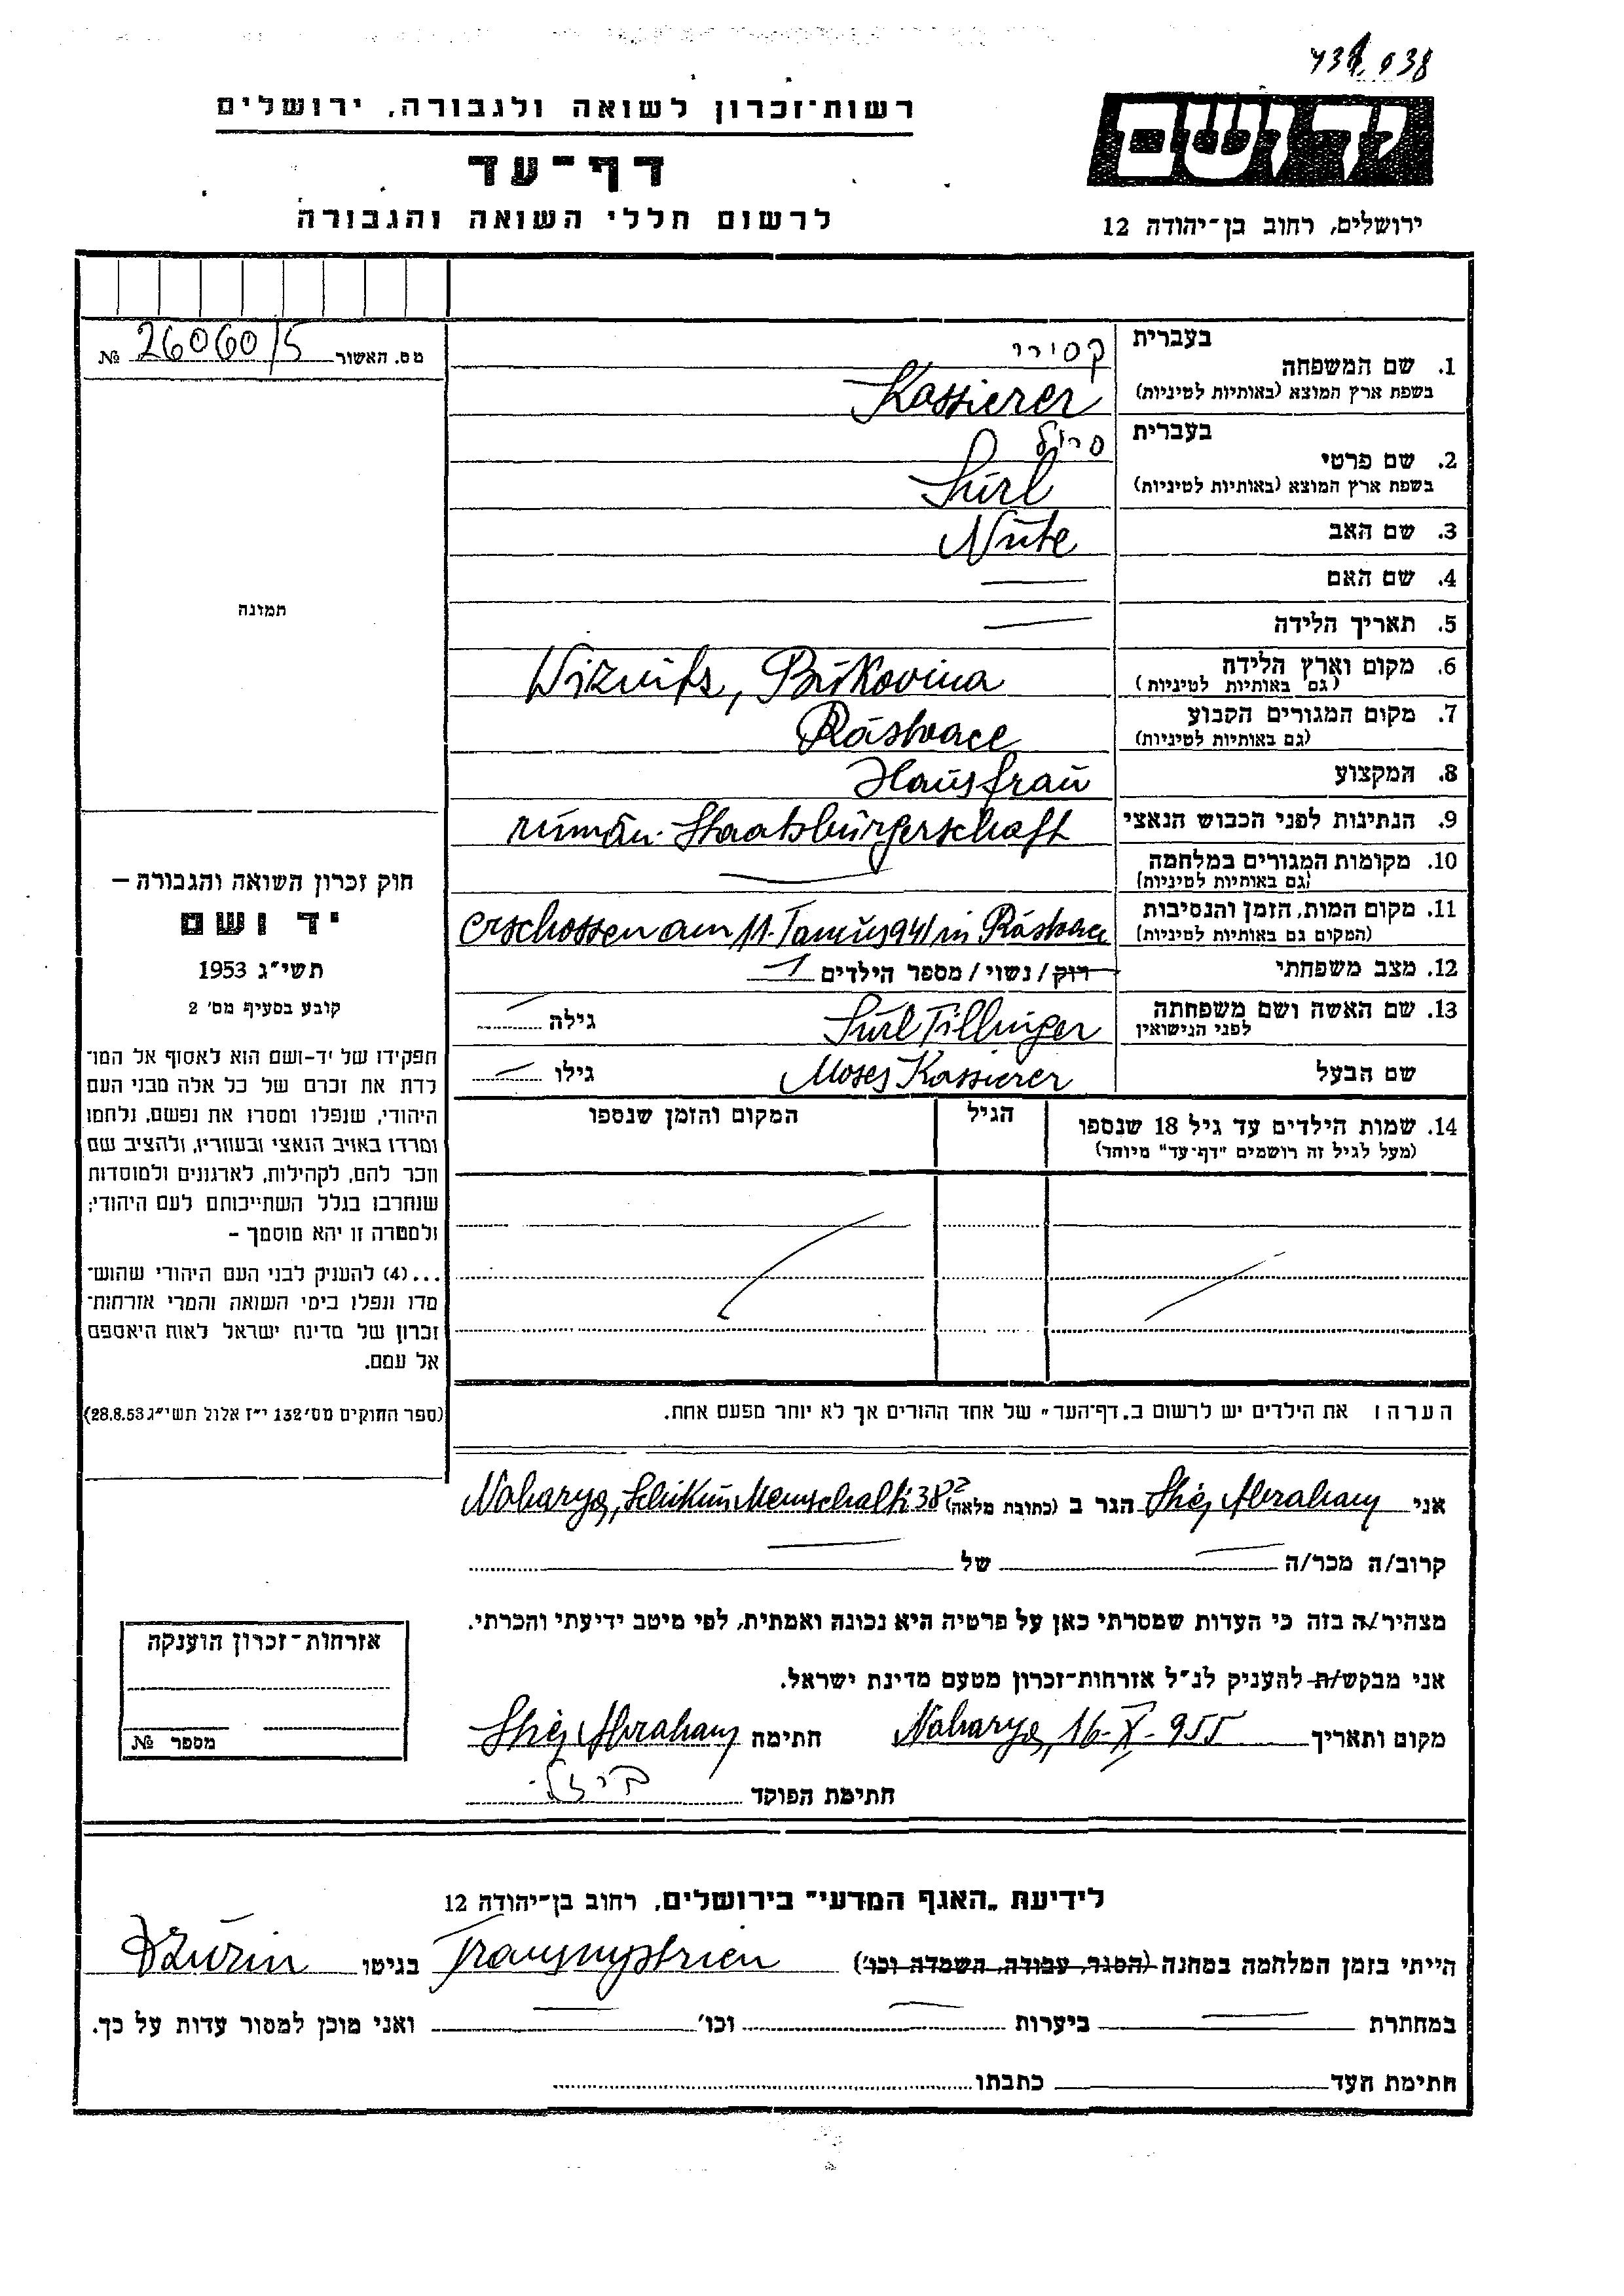 438038
רשות־זכרון לשואה ולגבורה, ירושלים
דף־עד
לרשום חללי השואה והגבורה
יד ושם
ירושלים, רחוב בן־יהודה 12
מס. האשור 26060/5 №
תמונה
חוק זכרון השואה והגבורה –
יד ושם
תשי"ג 1953
קובע בסעיף מס' 2
תפקידו של יד-ושם הוא לאסוף אל המו־
לדת את זכרם של כל אלה מבני העם
היהודי, שנפלו ומסרו את נפשם, נלחמו
ומרדו באויב הנאצי ובעוזריו, ולהציב שם
וזכר להם, לקהילות, לארגונים ולמוסדות
שנחרבו בגלל השתייכותם לעם היהודי;
ולמטרה זו יהא מוסמך –
...(4) להעניק לבני העם היהודי שהוש־
מדו ונפלו בימי השואה והמרי אזרחות־
זכרון של מדינת ישראל לאות היאספם
אל עמם.
(ספר החוקים מס' 132 י"ז אלול תשי"ג 28.8.53)
בעברית קסירר
1. שם המשפחה
בשפת ארץ המוצא (באותיות לטיניות) Kassierer
בעברית סורל
2. שם פרטי
בשפת ארץ המוצא (באותיות לטיניות) Surl
3. שם האב Nute
4. שם האם —
5. תאריך הלידה —
6. מקום וארץ הלידה Wiznits, Bukovina
(גם באותיות לטיניות)
7. מקום המגורים הקבוע Rástoace
(גם באותיות לטיניות)
8. המקצוע Hausfrau
9. הנתינות לפני הכבוש הנאצי rumän. Staatsbürgerschaft
10. מקומות המגורים במלחמה —
(גם באותיות לטיניות)
11. מקום המות, הזמן והנסיבות erschossen am 11. Tamus 941 in Rástoace
(המקום גם באותיות לטיניות)
12. מצב משפחתי רווק/נשוי/מספר הילדים 1
13. שם האשה ושם משפחתה Surl Tillinger גילה —
לפני הנישואין
שם הבעל Moses Kassierer גילו —
14. שמות הילדים עד גיל 18 שנספו הגיל המקום והזמן שנספו
(מעל לגיל זה רושמים "דף-עד" מיוחד)
הערה: את הילדים יש לרשום ב"דף־העד" של אחד ההורים אך לא יותר מפעם אחת.
אני Abraham הגר ב (כתובת מלאה) Naharya, 38
קרוב/ה מכר/ה — של —
מצהיר/ה בזה כי העדות שמסרתי כאן על פרטיה היא נכונה ואמתית, לפי מיטב ידיעתי והכרתי.
אני מבקש/ת להעניק לנ"ל אזרחות־זכרון מטעם מדינת ישראל.
מקום ותאריך Naharya, 16-X-955 חתימה Abraham
חתימת הפוקד
אזרחות־זכרון הוענקה
מספר №
לידיעת "האגף המדעי" בירושלים, רחוב בן־יהודה 12
הייתי בזמן המלחמה במחנה (הסגר, עבודה, השמדה וכו') Transnystrien בגיטו Dzurin
במחתרת — ביערות — וכו' — ואני מוכן למסור עדות על כך.
חתימת העד כתבתו